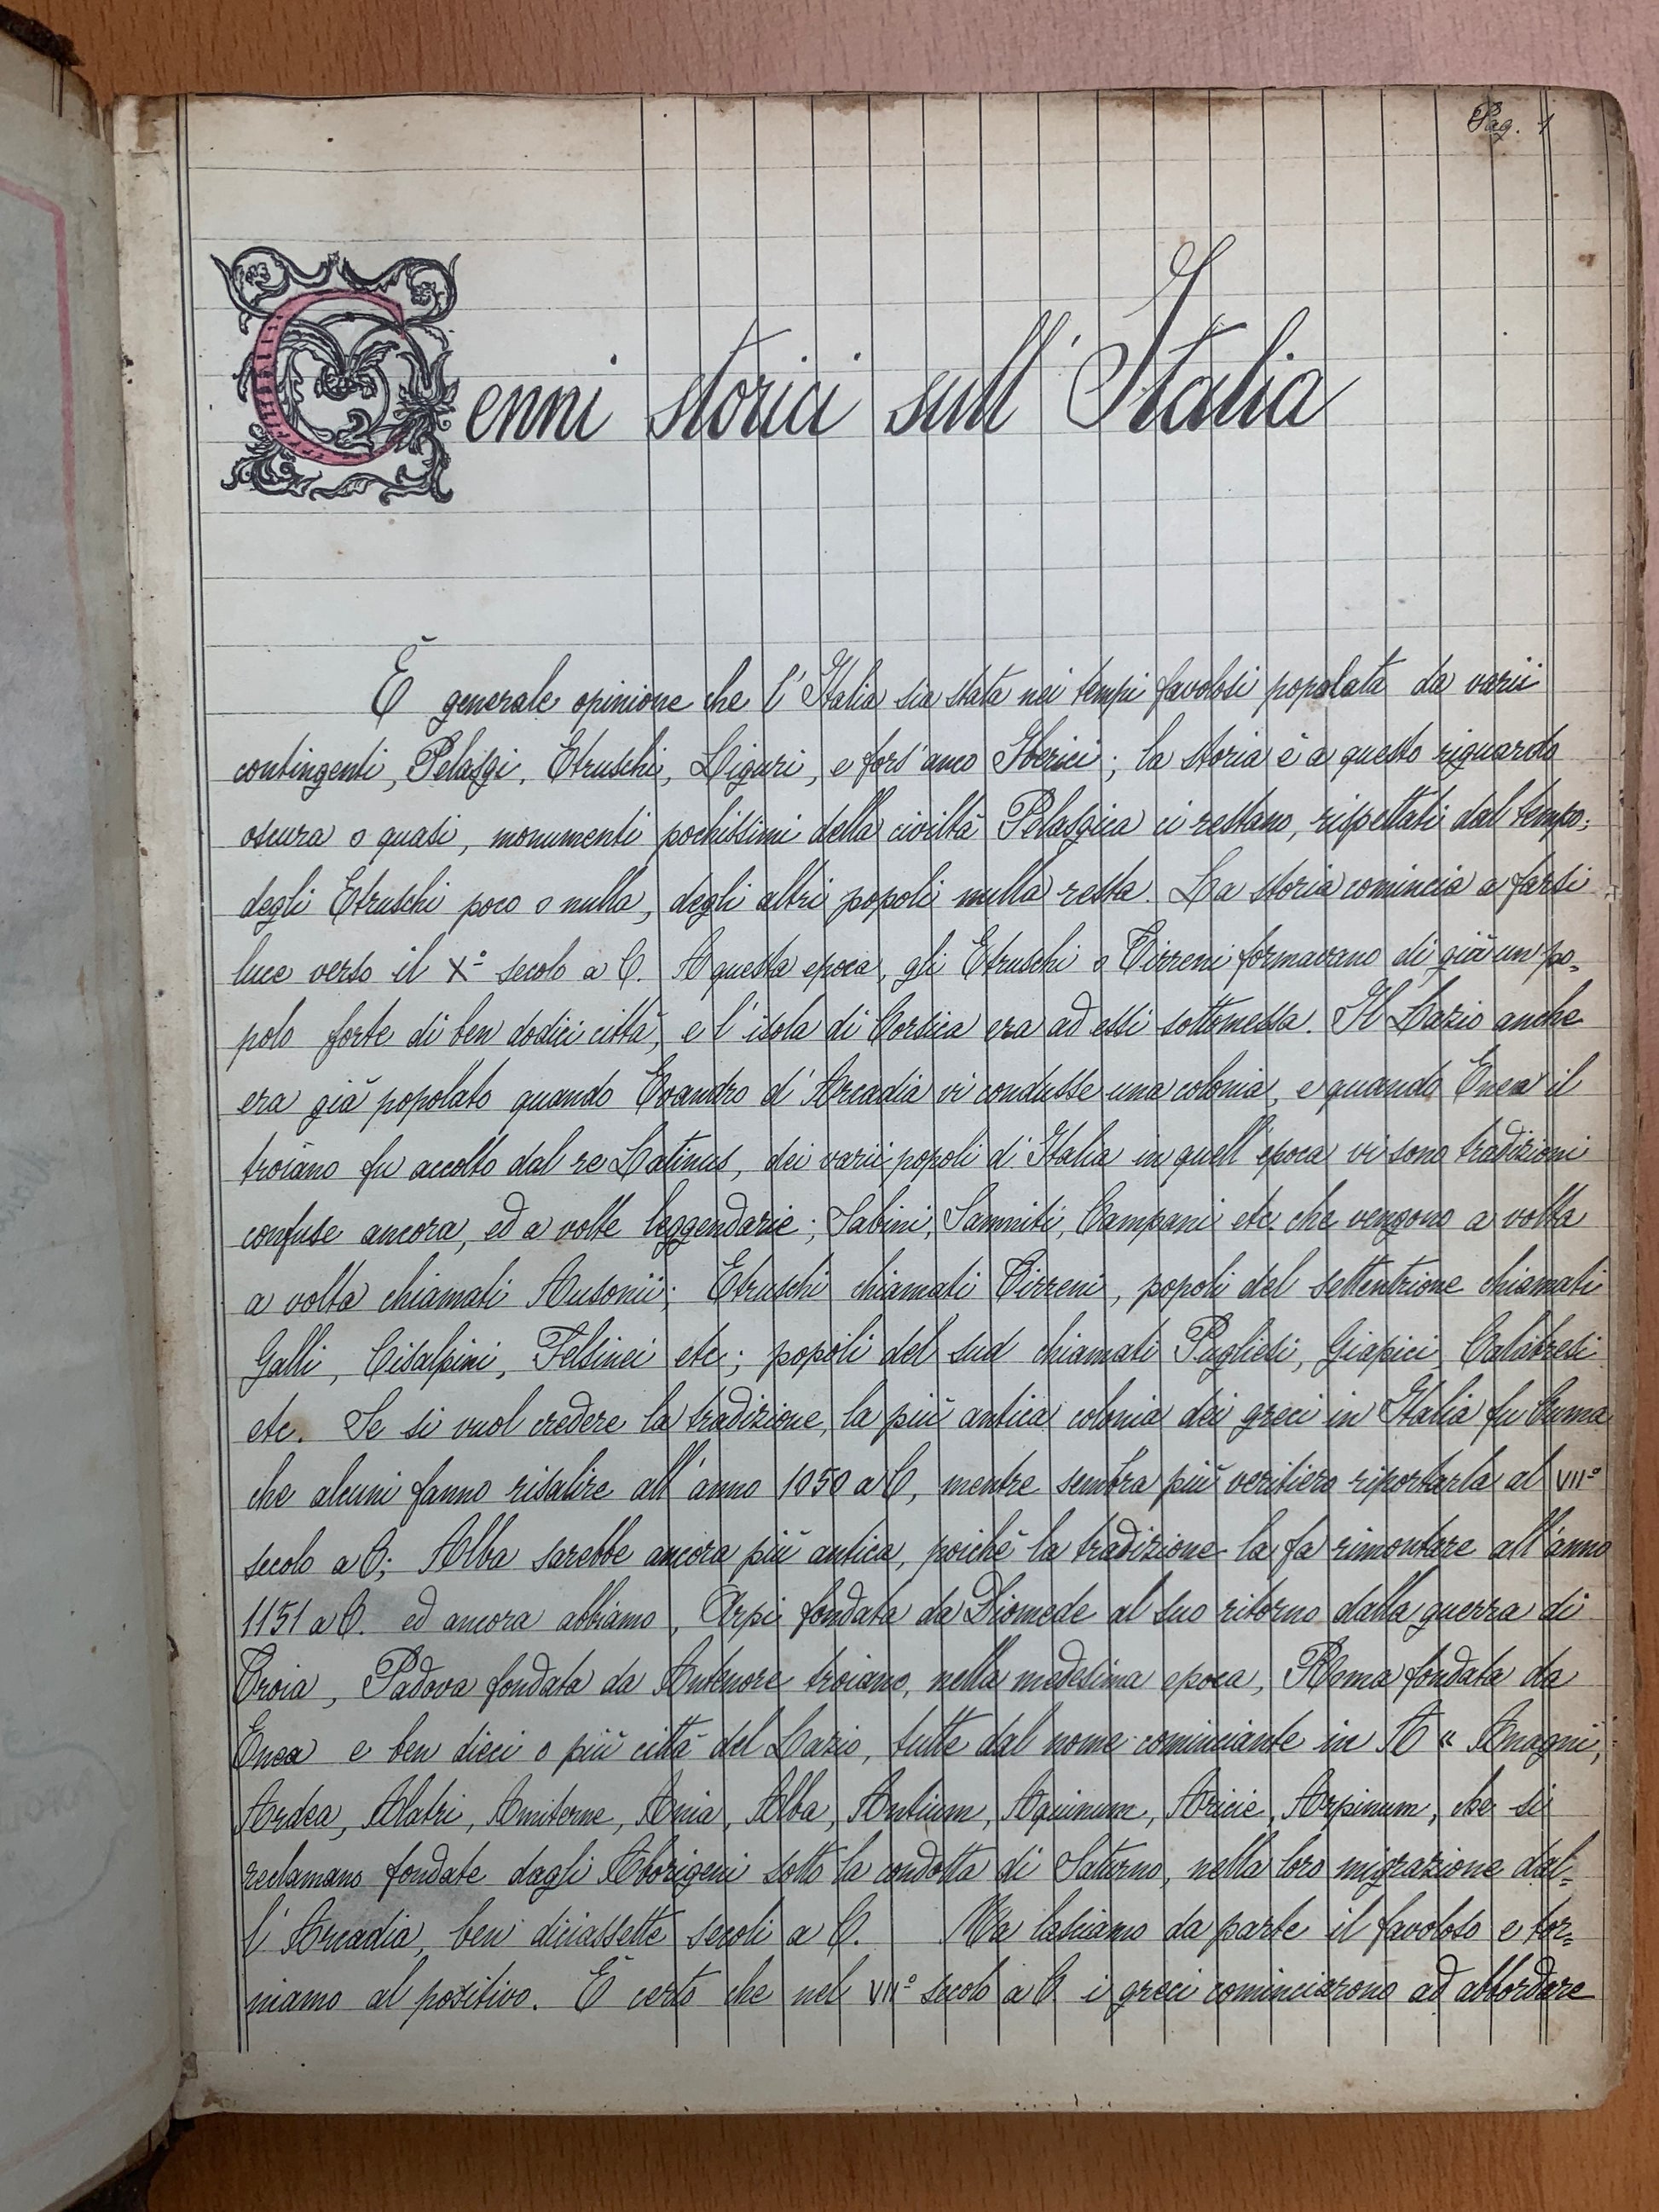 Pag. 1
Cenni storici sull' Italia
È generale opinione che l' Italia sia stata nei tempi favolosi popolata da varii
contingenti, Pelasgi, Etruschi, Liguri, e fors' anco Iberici; la storia è a questo riguardo
oscura o quasi, monumenti pochissimi della civiltà Pelasgica ci restano, rispettati dal tempo;
degli Etruschi poco o nulla, degli altri popoli nulla resta. La storia comincia a farsi
luce verso il X° secolo a C. A questa epoca, gli Etruschi o Tirreni formavano di già un po=
polo forte di ben dodici città, e l' isola di Corsica era ad essi sottomessa. Il Lazio anche
era già popolato quando Evandro d' Arcadia vi condusse una colonia, e quando Enea il
troiano fu accolto dal re Latinus, dei varii popoli d' Italia in quell' epoca vi sono tradizioni
confuse ancora, ed a volte leggendarie; Sabini, Sanniti, Campani etc che vengono a volta
a volta chiamati Ausonii; Etruschi chiamati Tirreni, popoli del settentrione chiamati
Galli, Cisalpini, Felsinei etc; popoli del sud chiamati Pugliesi, Giapici, Calabresi
etc. Se si vuol credere la tradizione, la più antica colonia dei greci in Italia fu Cuma
che alcuni fanno risalire all' anno 1050 a C, mentre sembra più veritiero riportarla al VII°
secolo a C; Alba sarebbe ancora più antica, poichè la tradizione la fa rimontare all' anno
1151 a C. ed ancora abbiamo, Arpi fondata da Diomede al suo ritorno dalla guerra di
Troia, Padova fondata da Antenore troiano, nella medesima epoca, Roma fondata da
Enea e ben dieci o più città del Lazio, tutte dal nome cominciante in A « Anagni,
Ardea, Alatri, Amiterne, Ania, Alba, Antium, Aquinum, Aricie, Arpinum, che si
reclamano fondate dagli Aborigeni sotto la condotta di Saturno, nella loro migrazione dal=
l' Arcadia, ben diciassette secoli a C. Ma lasciamo da parte il favoloso e tor=
niamo al positivo. È certo che nel VII° secolo a C. i greci cominciarono ad abbordare